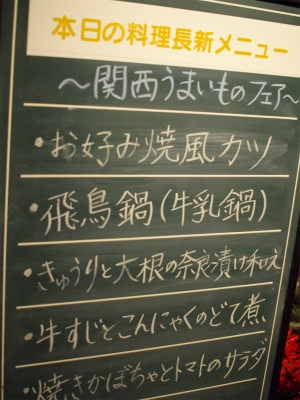 本日の料理長新メニュー
～関西うまいものフェア～
・お好み焼風カツ
・飛鳥鍋(牛乳鍋)
・きゅうりと大根の奈良漬け和え
・牛すじとこんにゃくのどて煮
・焼きかぼちゃとトマトのサラダ